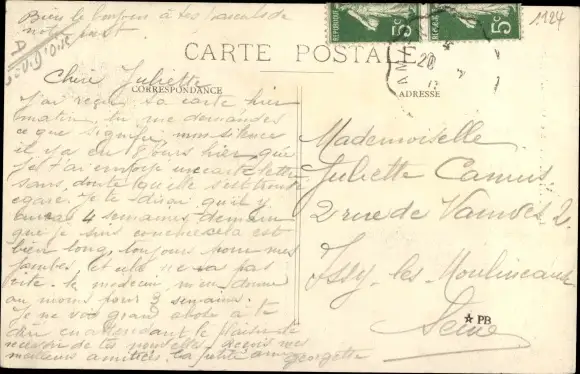 Bien le bonjour à tes parents de
notre part
1124
CARTE POSTALE
CORRESPONDANCE
ADRESSE
5c
5c
Chère Juliette
J'ai reçu ta carte hier
matin, tu me demandes
ce que signifie mon silence
il y a eu 8 jours hier que
je t'ai envoyé une carte lettre
sans doute qu'elle s'est trouvée
égarée. Je te dirai qu'il y
aura 4 semaines demain
que je suis couchée cela est
bien long, toujours pour mes
jambes, et cela ne va pas
vite. Le médecin m'en donne
au moins pour 3 semaines.
Je ne vois grand chose à te
dire en attendant le plaisir de
recevoir de tes nouvelles reçois mes
meilleurs amitiés, ta petite amie
georgette
Mademoiselle
Juliette Camus
2 rue de Vanves 2
Issy-les-Moulineaux
Seine
PB